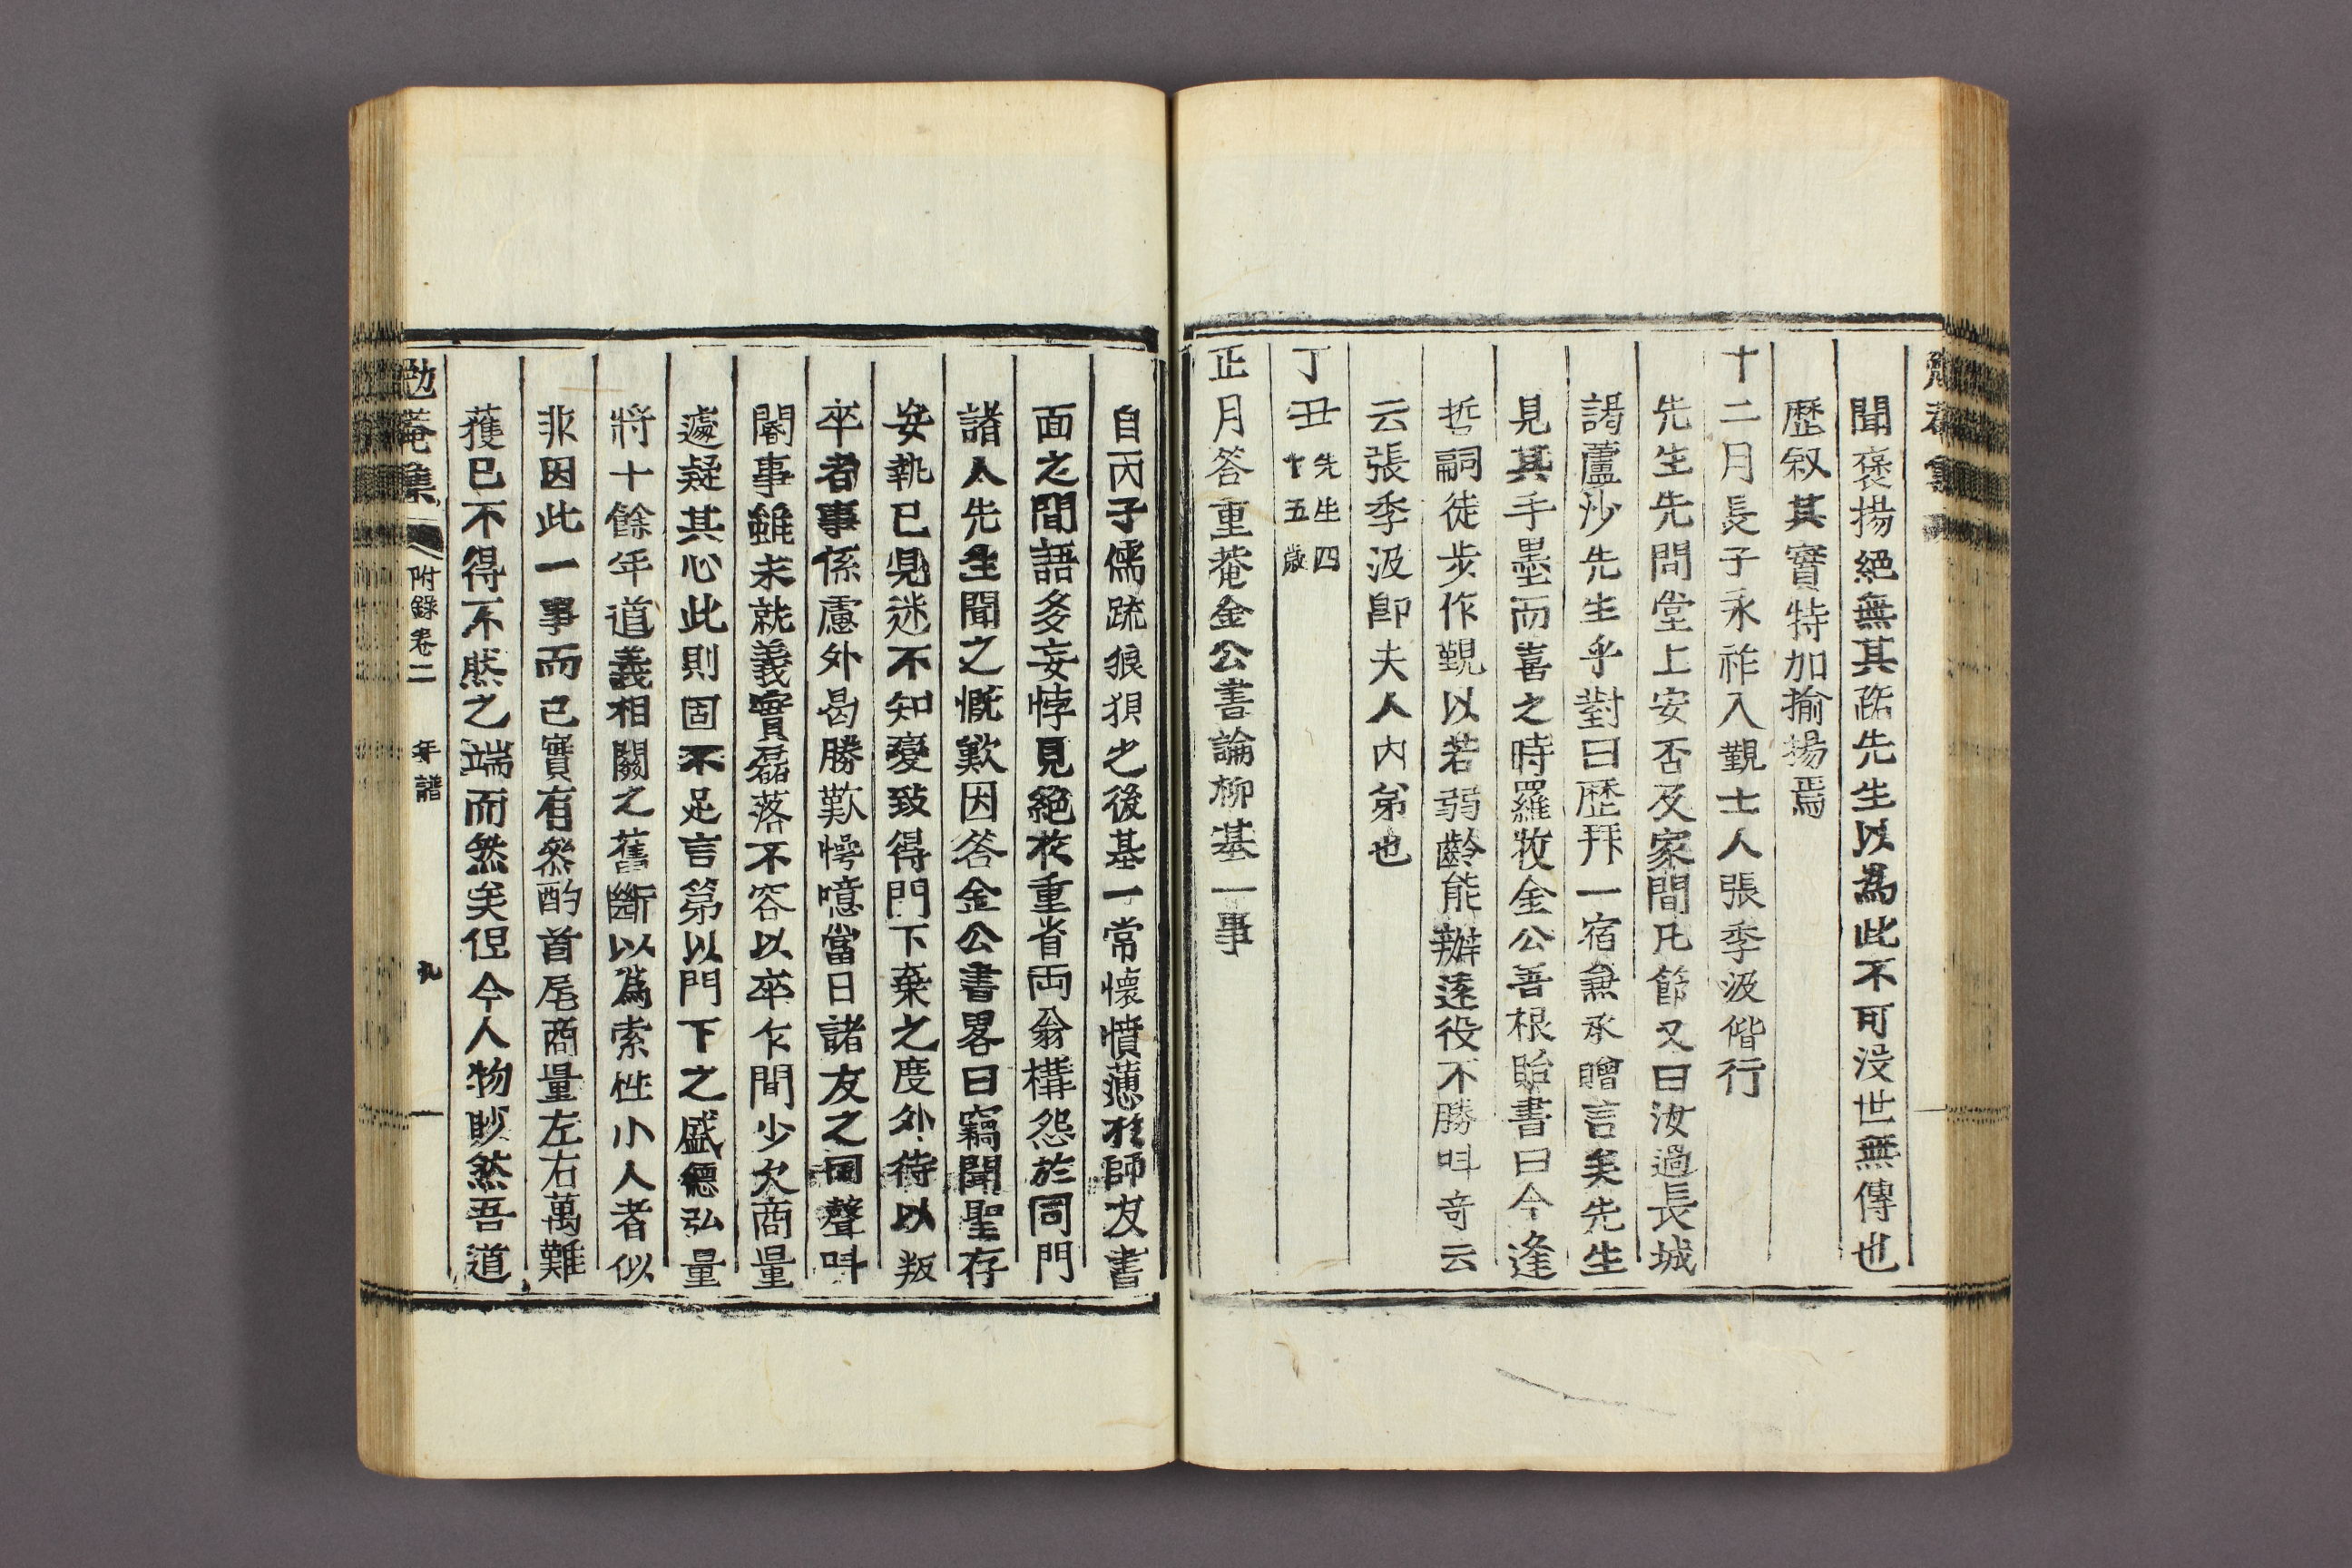 聞褒揚絶無其跖先生以爲此不可没世無傳也
歷叙其實特加揄揚焉
十二月長子永祚入覲士人張季汲偕行
先生先問堂上安否及家間凡節又曰汝過長城
謁蘆沙先生乎對曰歷拜一宿兼承贈言矣先生
見其手墨而喜之時羅牧金公善根貽書曰今逢
哲嗣徒步作覲以若弱齡能辦遠役不勝叫奇云
云張季汲卽夫人內弟也
丁丑先生四十五歲
正月答重菴金公書論柳基一事
自丙子儒疏狼狽之後基一常懷憤懣於師友書
面之間語多妄悖見絕於重省両翁構怨於同門
諸人先生聞之慨歎因答金公書畧曰竊聞聖存
安執已見迷不知變致得門下棄之度外待以叛
卒者事係慮外曷勝歎愕噫當日諸友之同聲叫
閽事雖未就義實磊落不容以卒乍間少欠商量
遽疑其心此則固不足言第以門下之盛德弘量
將十餘年道義相關之舊斷以爲索性小人者似
非因此一事而已實有叅酌首尾商量左右萬難
獲已不得不然之端而然矣但今人物眇然吾道
勉菴集
附錄卷二
年譜
九